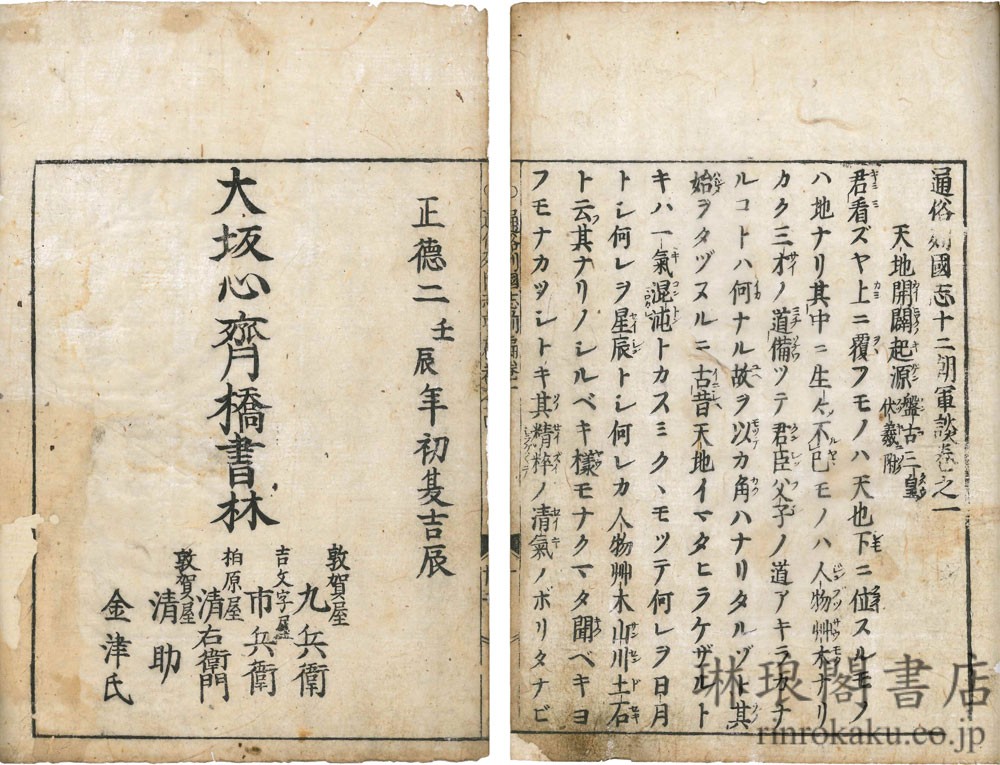 通俗列國志十二朝軍談卷之一
天地開闢起源 盤古三皇
伏羲附
君看ズヤ上ニ覆フモノハ天也下ニ位スルモノ
ハ地ナリ其中ニ生々不已モノハ人物艸木ナリ
カク三才ノ道備ツテ君臣父子ノ道アキラカナ
ルコトハ何ナル故ヲ以カ角ハナリタルゾト其
始ヲタヅヌルニ古昔天地イマタヒラケザルト
キハ一氣混沌トカスミクヽモツテ何レヲ日月
トシ何レヲ星辰トシ何レカ人物艸木山川土石
ト云其ナリノシルベキ樣モナクマタ聞ベキヨ
フモナカツシトキ其精粹ノ清氣ノボリタナビ
正德二壬辰年初夏吉辰
大坂心齊橋書林
敦賀屋
九兵衛
吉文字屋
市兵衛
柏原屋
清右衛門
敦賀屋
清助
金津氏
琳琅閣書店
rinrokaku.co.jp